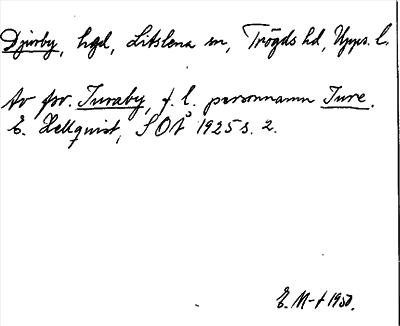 Djurby, hgd, Litslena sn, Trögds hd, Upps. l.
Av fsv. Turaby, f. l. personnamn Ture.
E. Hellquist, SOÅ 1925 s. 2.
E. M-t 1950.